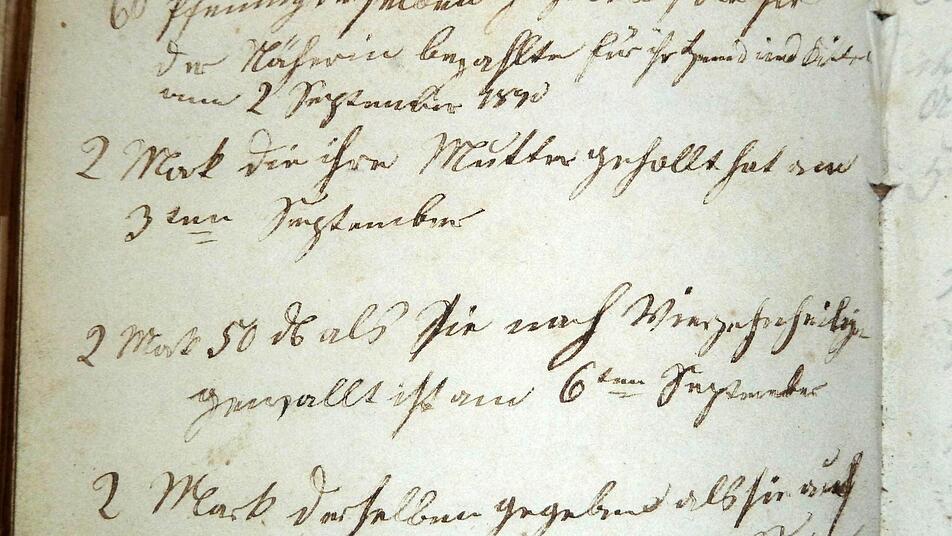 60 Pfennig derselben
der Näherin bezahlte für ihr Hemd und
am 2 September 1890
2 Mark die ihre Mutter gehollt hat am
3ten September
2 Mark 50 ₰ als Sie nach Vierzehnheilige
gewallt ist am 6ten September
2 Mark derselben gegeben als sie auf